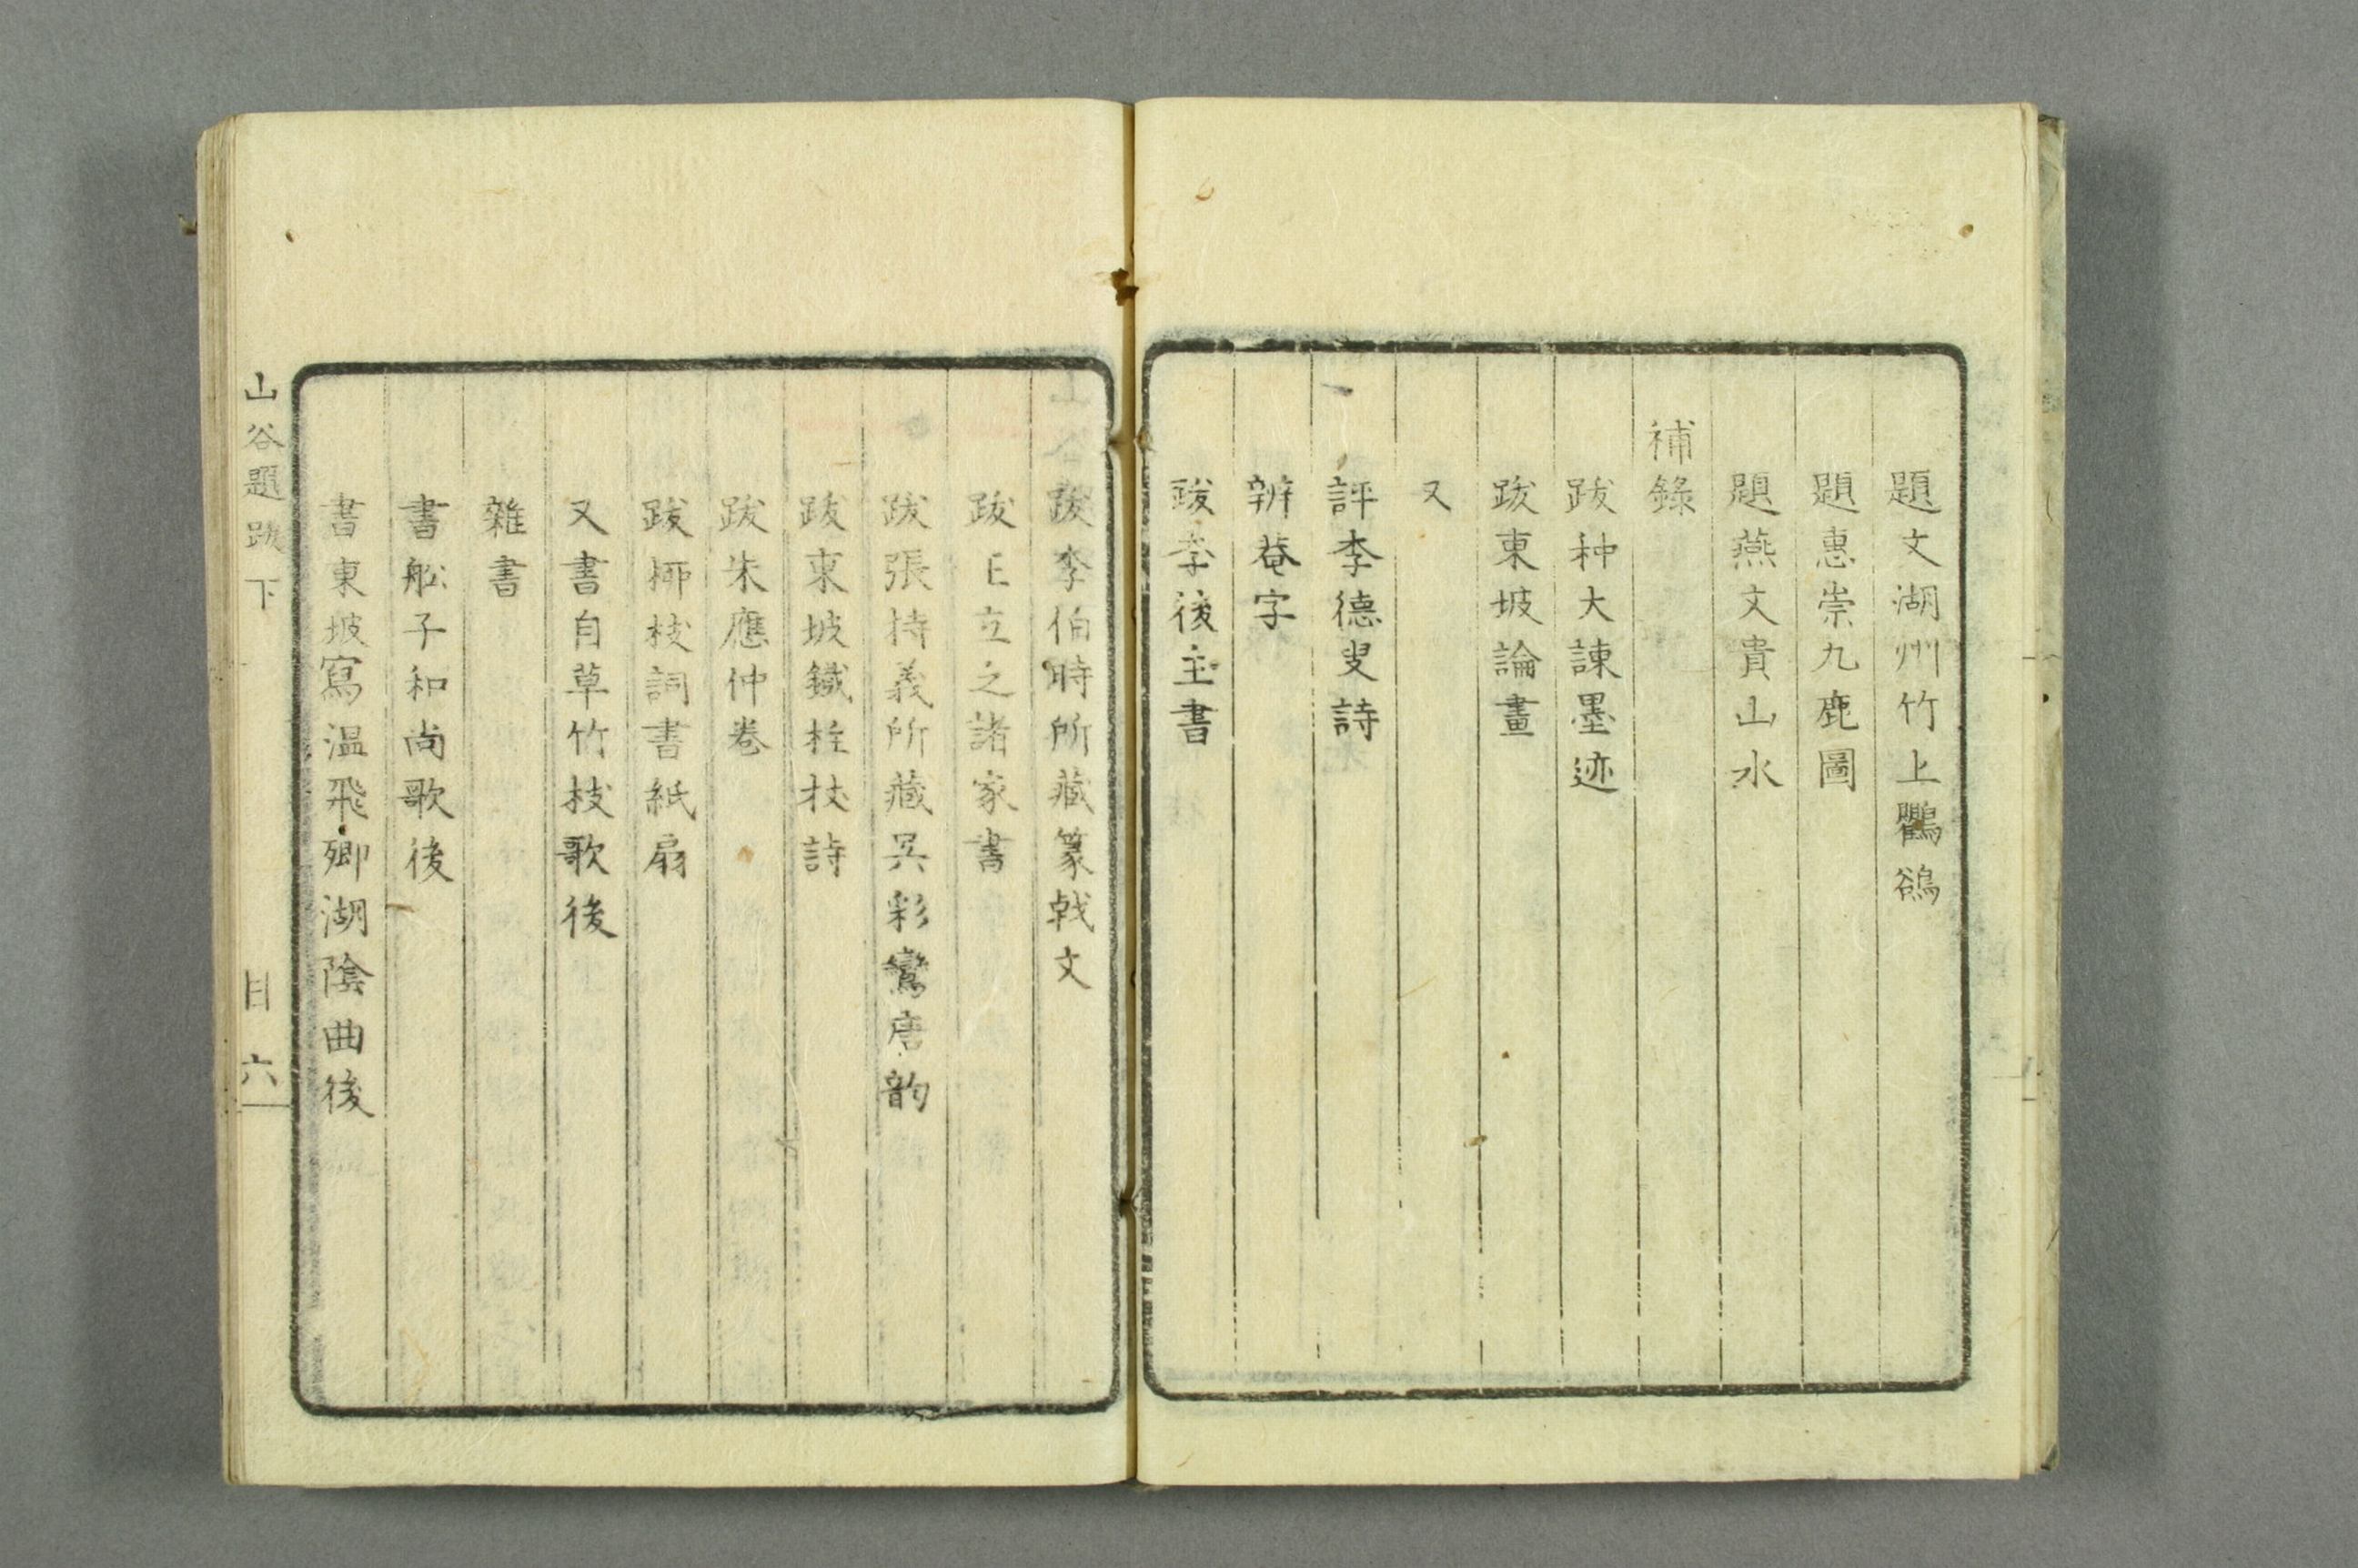 題文湖州竹上鸜鵒
題惠崇九鹿圖
題燕文貴山水
補錄
跋种大諫墨迹
跋東坡論畫
又
評李德叟詩
辨菴字
跋李後主書
跋李伯時所藏篆戟文
跋立之諸家書
跋張持義所藏吳彩鸞唐韵
跋東坡鐵柱杖詩
跋朱應仲卷
跋柳枝詞書紙扇
又書自草竹枝歌後
雜書
書舩子和尚歌後
書東坡寫温飛卿湖陰曲後
山谷題跋下 目 六